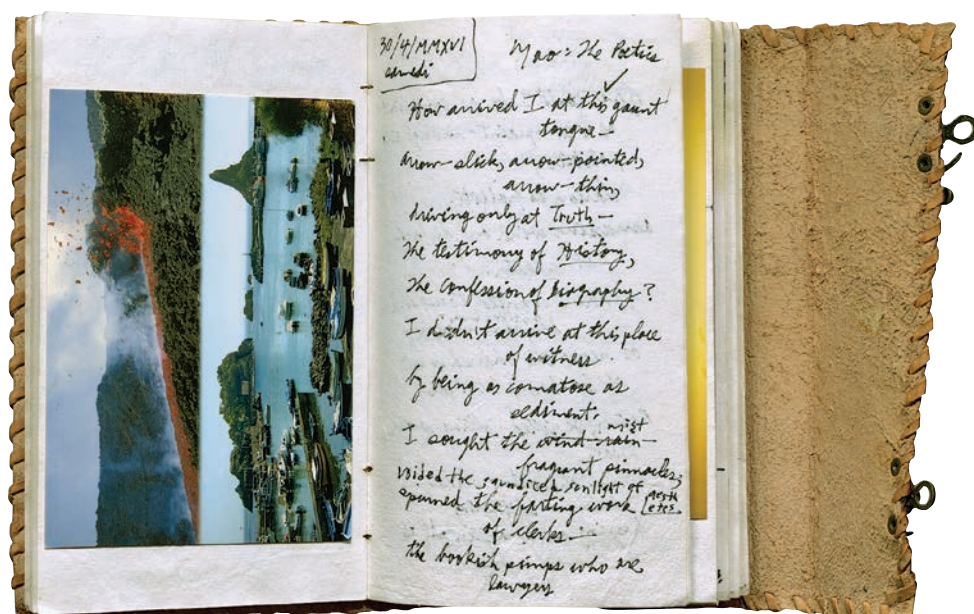 30/4/MMXVI
Mao: The Poetics
How arrived I at this gaunt
tongue—
arrow-slick, arrow-pointed,
arrow-thin,
driving only at Truth—
the testimony of History,
the confession of Biography?
I didn't arrive at this place
of witness
by being as comatose as
sediment.
I sought the wind-rain-
mist
fragrant pinnacles,
voided the jaundiced sunlight of
aesthetes.
spurned the farting work
of clerks—
the bookish pimps who are
lawyers